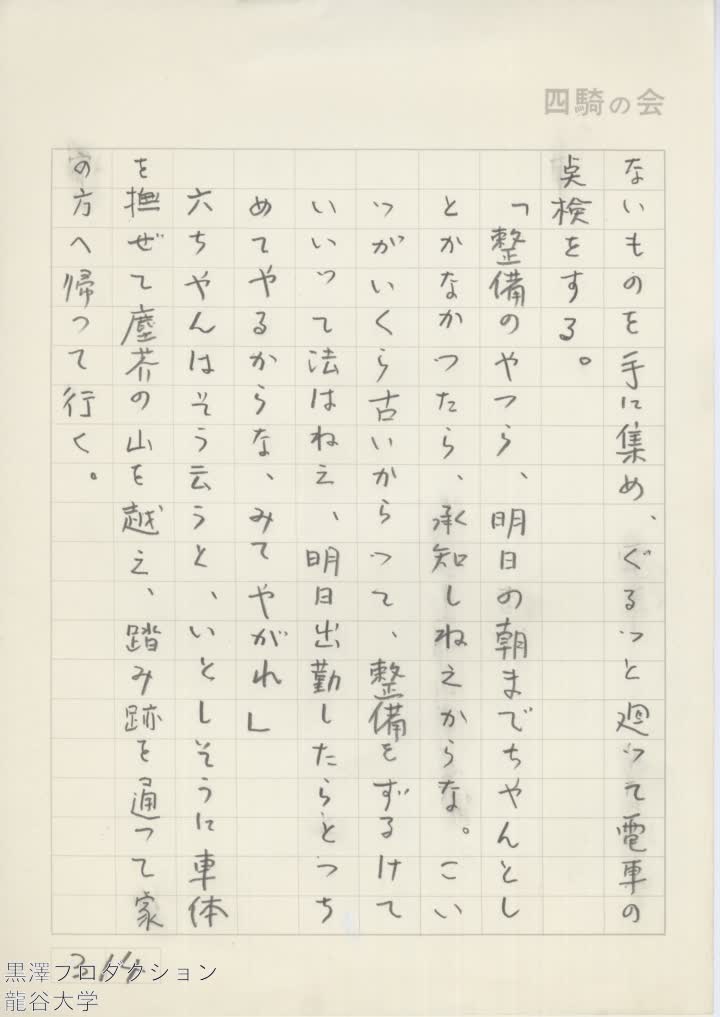 四騎の会
ないものを手に集め、ぐるっと廻って電車の
点検をする。
「整備のやつら、明日の朝までちやんとし
とかなかつたら、承知しねえからな。こい
つがいくら古いからって、整備をずるけて
いいって法はねえ、明日出勤したらとつち
めてやるからな、みてやがれ」
六ちやんはそう云うと、いとしそうに車体
を撫ぜて塵芥の山を越え、踏み跡を通つて家
の方へ帰って行く。
黒澤プロダクション
龍谷大学